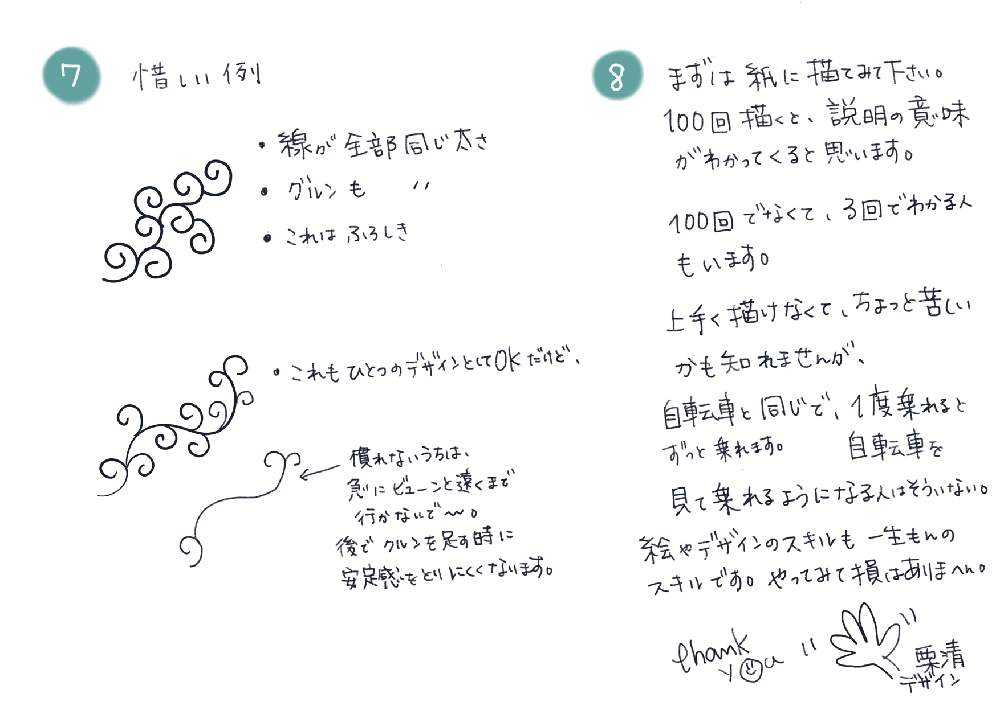 7 惜しい例
・線が全部同じ太さ
・グルンも 〃
・これはふろしき
・これもひとつのデザインとしてOKだけど、
慣れないうちは、
急にビューンと遠くまで
行かないで〜。
後でクルンを足す時に
安定感をとりにくくなります。
8 まずは紙に描てみて下さい。
100回描くと、説明の意味
がわかってくると思います。
100回でなくて、3回でわかる人
もいます。
上手く描けなくて、ちょっと苦しい
かも知れませんが、
自転車と同じで、1度乗れると
ずっと乗れます。 自転車を
見て乗れるようになる人はそういない。
絵やデザインのスキルも一生もんの
スキルです。やってみて損はありまへん。
thank
you
栗清
デザイン